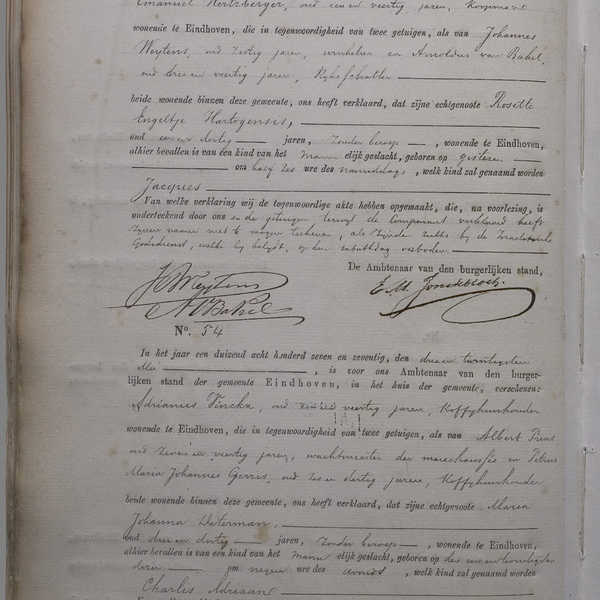 Emanuel Hertzberger, oud een en veertig jaren, Koopman
wonende te Eindhoven, die in tegenwoordigheid van twee getuigen, als van Johannes
Weytens, oud zestig jaren, winkelier en Arnoldus van Bakel,
oud drie en veertig jaren,
beide wonende binnen deze gemeente, ons heeft verklaard, dat zijne echtgenoote Rosette
Engeltje Hartogensis,
oud een en dertig jaren, Zonder beroep, wonende te Eindhoven,
alhier bevallen is van één kind van het Mannelijk geslacht, geboren op gisteren
om half zes ure des namiddags, welk kind zal genaamd worden
Jacques
Van welke verklaring wij de tegenwoordige akte hebben opgemaakt, die, na voorlezing, is
onderteekend door ons en de getuigen terwijl de Comparant verklaard heeft
zijnen naam niet te mogen teekenen, als zijnde zulks bij de Israelitische
Godsdienst, welke hij belijdt, op den sabbathdag verboden.
De Ambtenaar van den burgerlijken stand,
JWeytens
AvBakel
E. M. Jonckbloet.
No. 54
In het jaar een duizend acht honderd zeven en zeventig, den drie en twintigsten
Mei, is voor ons Ambtenaar van den burger-
lijken stand der gemeente Eindhoven, in het huis der gemeente, verschenen:
Adrianus Vincke, oud veertig jaren, Koffyhuishouder
wonende te Eindhoven, die in tegenwoordigheid van twee getuigen, als van Albert
oud zeven en veertig jaren, wachtmeester der marechaussée en Petrus
Maria Johannes Gerris, oud zes en dertig jaren, Koffyhuishouder
beide wonende binnen deze gemeente, ons heeft verklaard, dat zijne echtgenoote Maria
Johanna Waterman,
oud drie en dertig jaren, Zonder beroep, wonende te Eindhoven,
alhier bevallen is van één kind van het Mannelijk geslacht, geboren op den een en twintigsten
dezer om negen ure des avonds, welk kind zal genaamd worden
Charles Adriaan